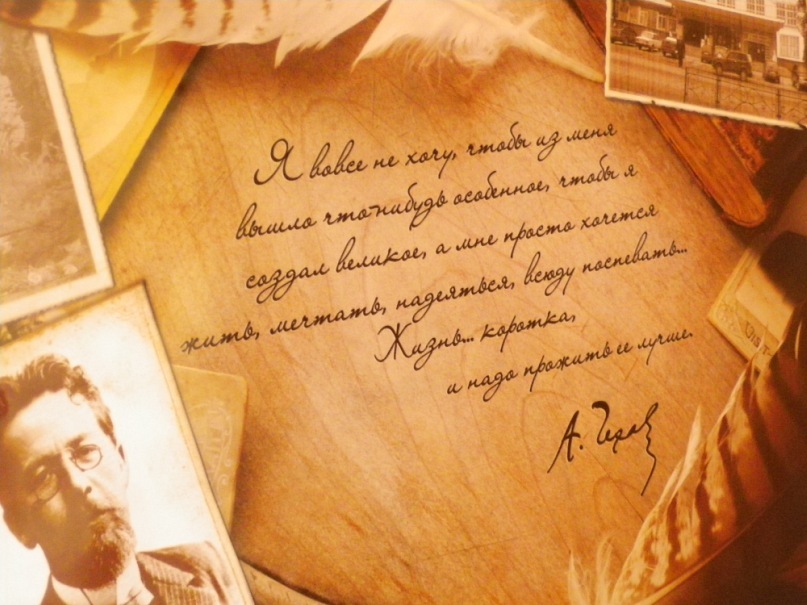 Я вовсе не хочу, чтобы из меня
вышло что-нибудь особенное, чтобы я
создал великое, а мне просто хочется
жить, мечтать, надеяться, всюду поспевать...
Жизнь... коротка,
и надо прожить ее лучше.
А. Чехов